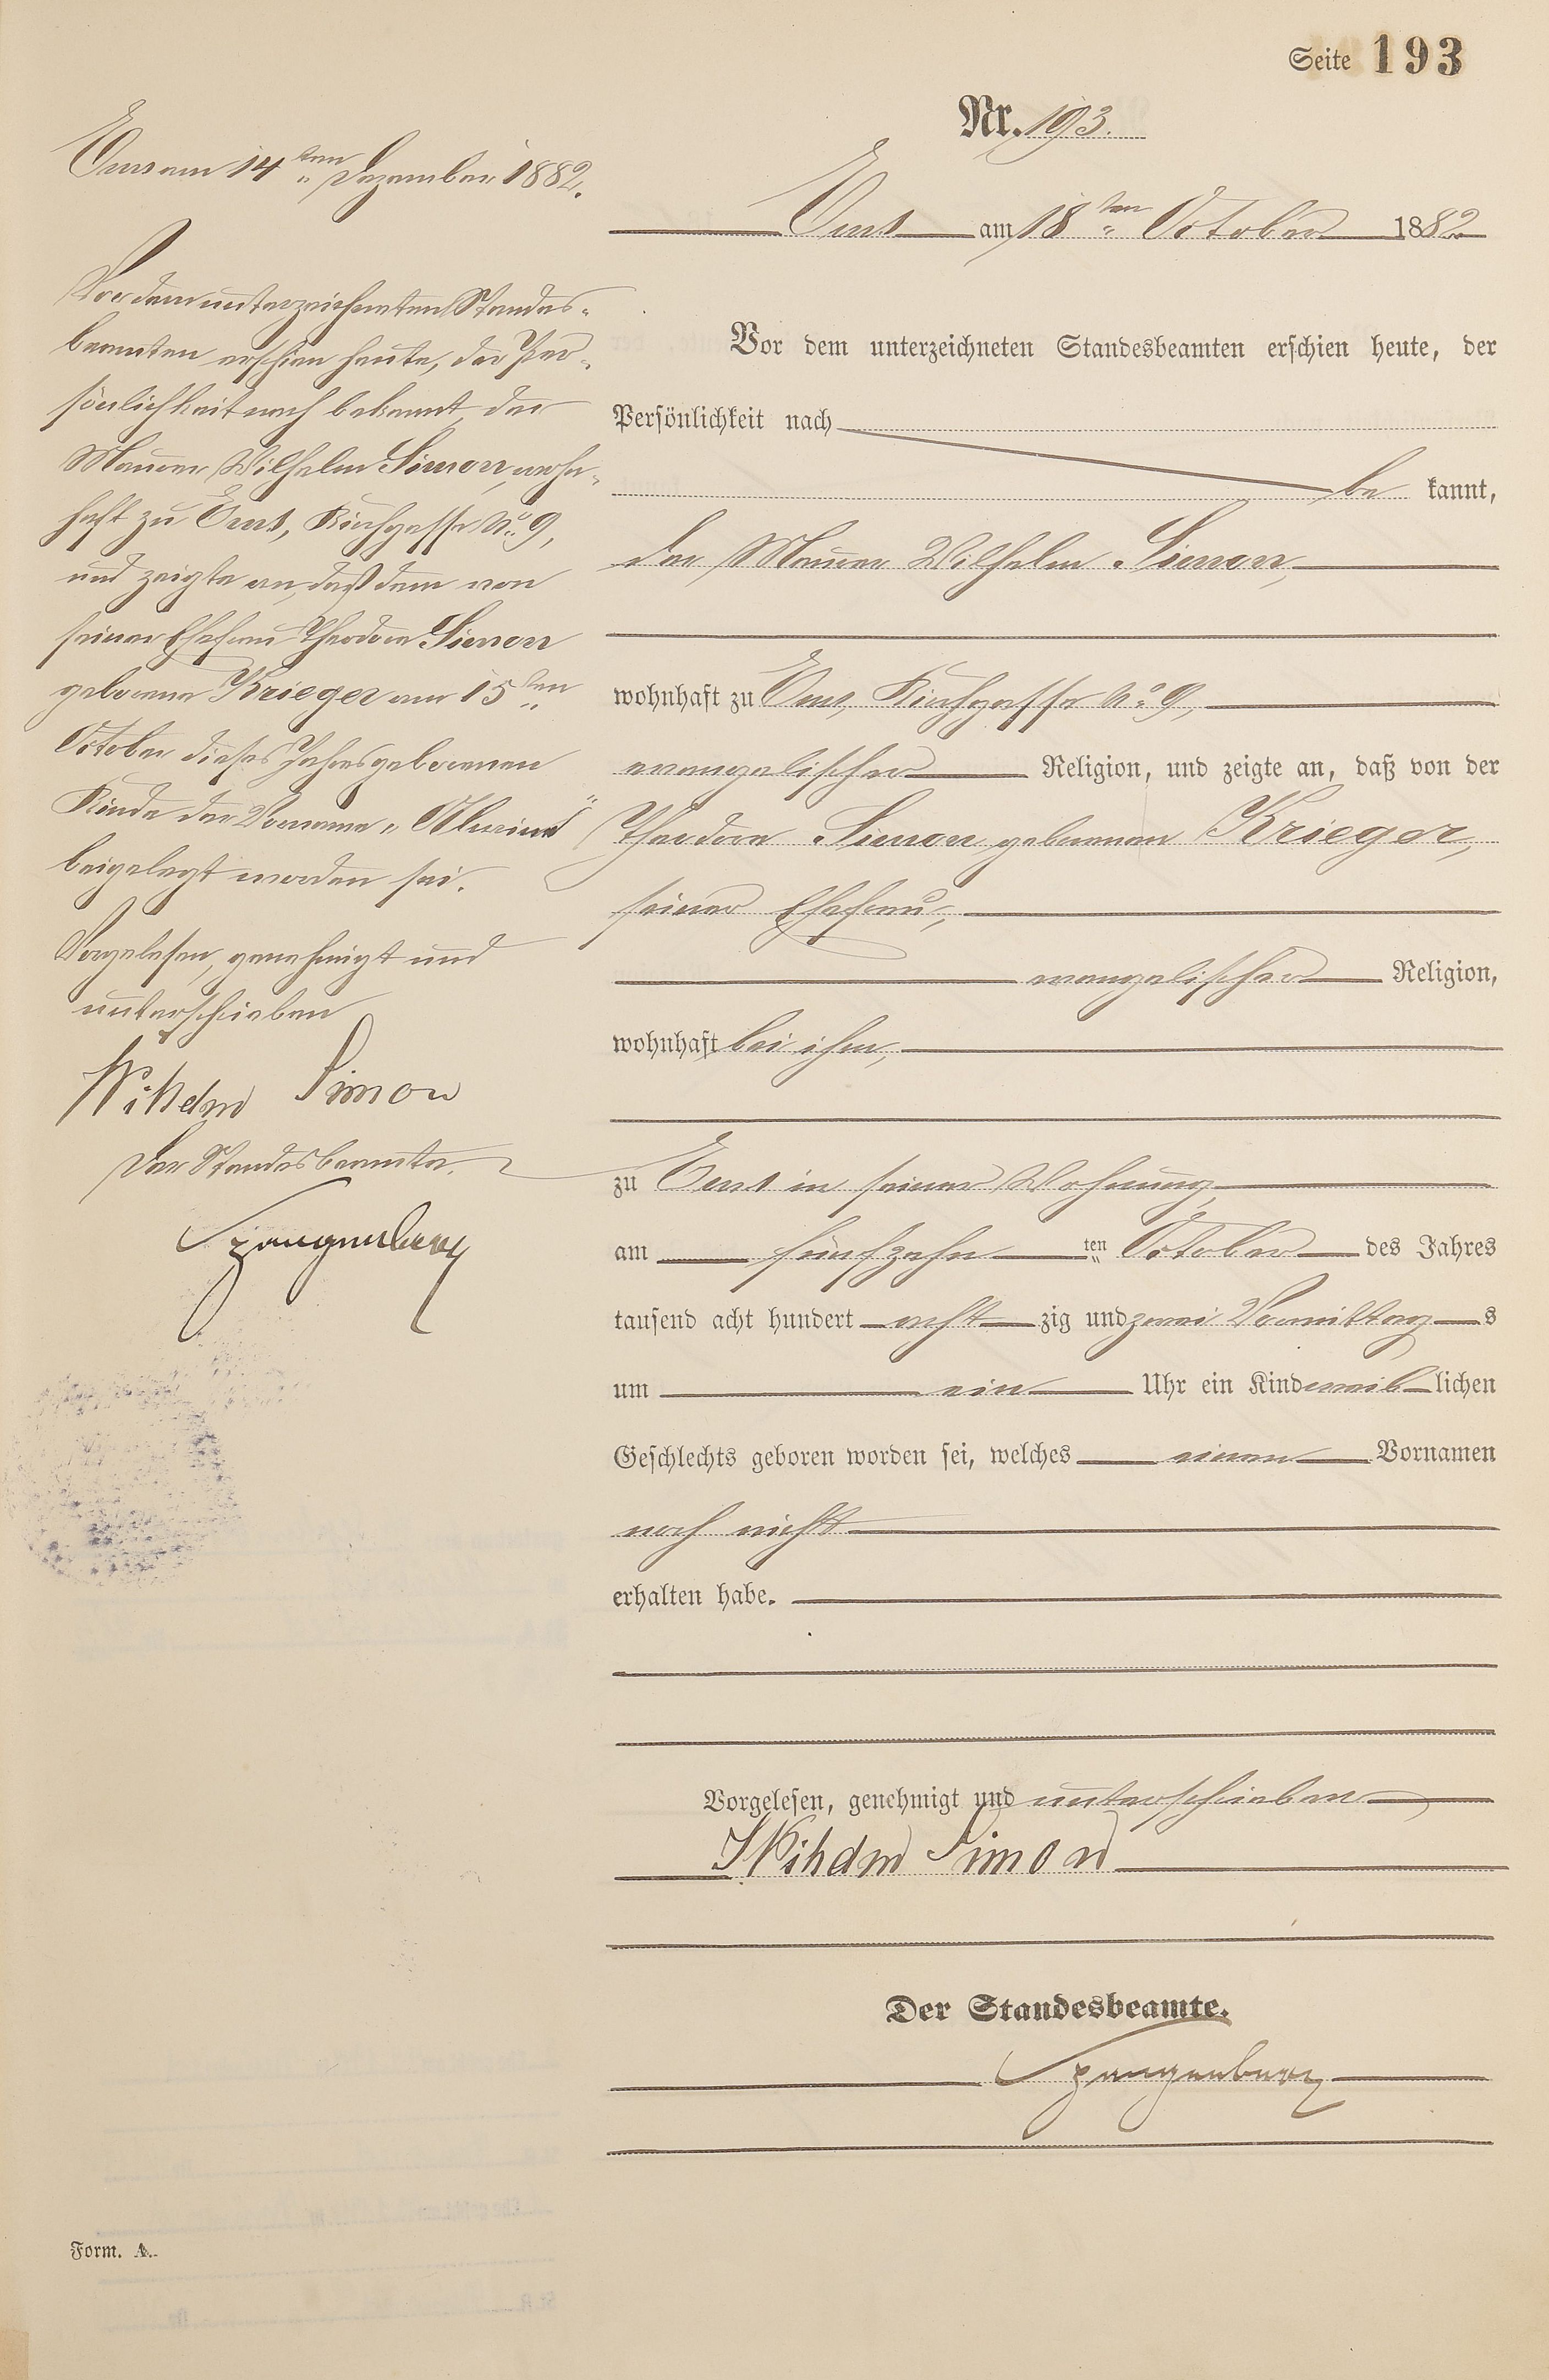 Seite 193
Nr. 193.
Ems am 18ten October 1882
Vor dem unterzeichneten Standesbeamten erschien heute, der
Persönlichkeit nach
be kannt,
der Maurer Wilhelm Simon,
wohnhaft zu Ems, Kirchgasse No 9,
evangelischer Religion, und zeigte an, daß von der
Theodore Simon geborenen Krieger,
seiner Ehefrau,
evangelischer Religion,
wohnhaft bei ihm,
zu Ems in seiner Wohnung,
am fünfzehn ten October des Jahres
tausend acht hundert acht zig und zwei Vormittag s
um ein Uhr ein Kind weib lichen
Geschlechts geboren worden sei, welches einen Vornamen
noch nicht
erhalten habe.
Vorgelesen, genehmigt und unterschrieben
Wilhelm Simon
Der Standesbeamte.
Spangenberg
Ems am 14ten Dezember 1882.
Vor dem unterzeichneten Standes-
beamten erschien heute, der Per-
sönlichkeit nach bekannt, der
Maurer Wilhelm Simon, wohn-
haft zu Ems, Kirchgasse No 9,
und zeigte an, daß dem von
seiner Ehefrau Theodore Simon
geborenen Krieger am 15ten
October dieses Jahres geborenen
Kinde der Vorname
beigelegt worden sei.
Vorgelesen, genehmigt und
unterschrieben
Wilhelm Simon
Der Standesbeamte.
Spangenberg
Form. A.